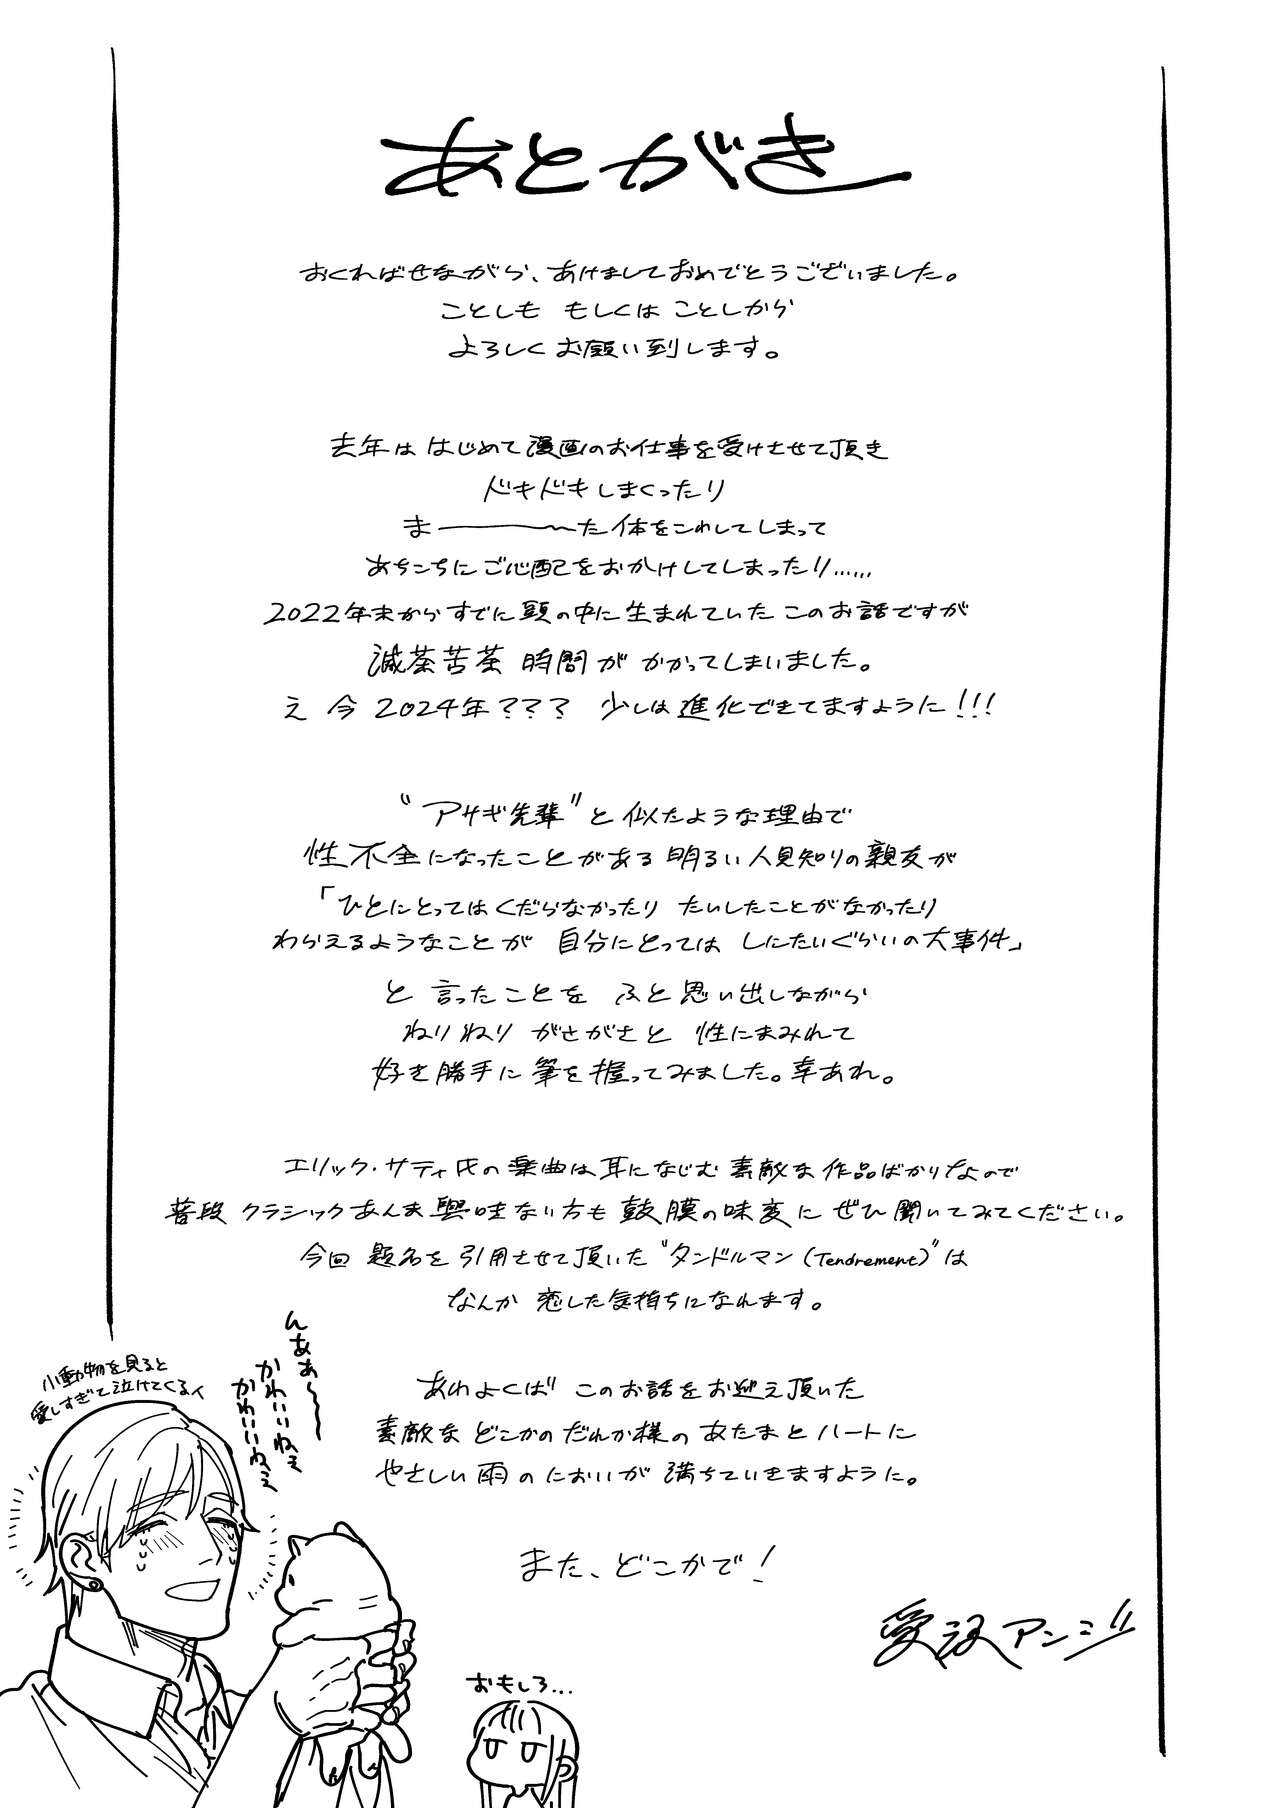 あとがき
おくればせながら、あけましておめでとうございました。
ことしも もしくは ことしから
よろしくお願い到します。
去年は はじめて漫画のお仕事を受けさせて頂き
ドキドキしまくったり
ま――――〜た体をこわしてしまって
あちこちにご心配をおかけしてしまったり……
2022年末からすでに頭の中に生まれていたこのお話ですが
滅茶苦茶 時間が かかってしまいました。
え 今 2024年??? 少しは進化できてますように!!!
“アサギ先輩”と似たような理由で
性不全になったことがある明るい人見知りの親友が
「ひとにとってはくだらなかったり たいしたことがなかったり
わらえるようなことが 自分にとっては しにたいぐらいの大事件」
と 言ったことを ふと思い出しながら
ねりねり がさがさと 性にまみれて
好き勝手に筆を握ってみました。幸あれ。
エリック・サティ氏の楽曲は耳になじむ素敵な作品ばかりなので
普段クラシックあんま興味ない方も鼓膜の味変にぜひ聞いてみてください。
今回 題名を引用させて頂いた“タンドルマン(Tendrement)”は
なんか 恋した気持ちになれます。
あわよくば このお話をお迎え頂いた
素敵な どこかのだれか様のあたまとハートに
やさしい雨のにおいが満ちていきますように。
また、どこかで!
アンジ
小動物を見ると
愛しすぎて泣けてくる人
んあぁ〜
かわいいねぇ
かわいいねぇ
おもしろ...